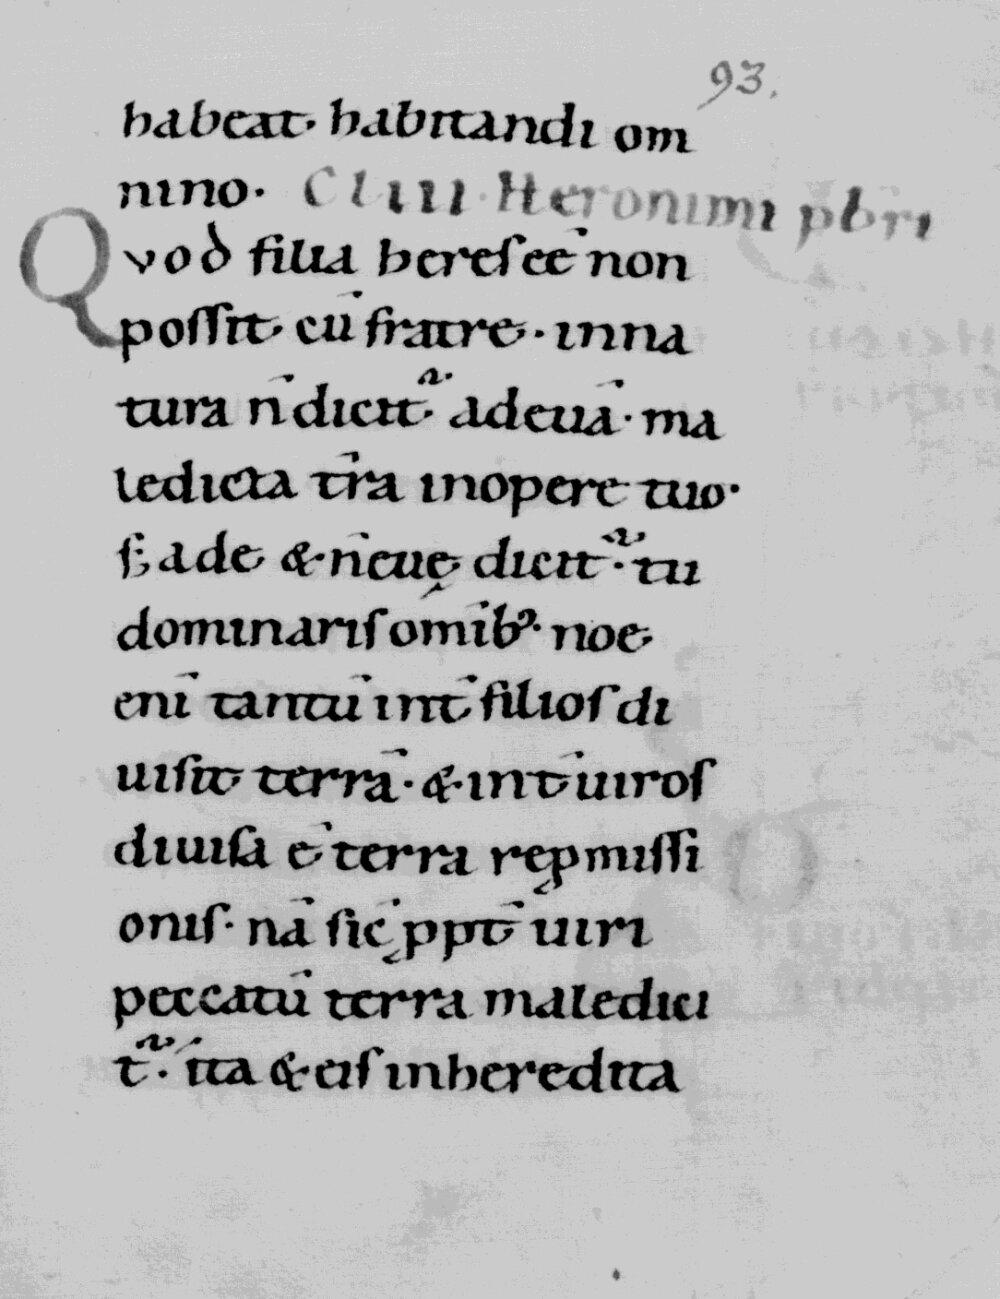 93.
habeat· habitandi om
nino· CLIIII· Heronimi pbri
Quod filia heres eē non
possit cū fratre· in na
tura n̄ dicit᷑· ad euā· ma
ledicta t̄ra in opere tuo·
s; adę &· n̄ euę dicit᷑· tu
dominaris om̄ib;· noe
eni̅ tantū int̄ filios di
uisit terrā· &· int̄ uiros
diuisa ē terra rep̱missi
onis· nā sic̄ ꝓpt̄ uiri
peccatū terra maledici
t᷑· ita &· eis in heredita